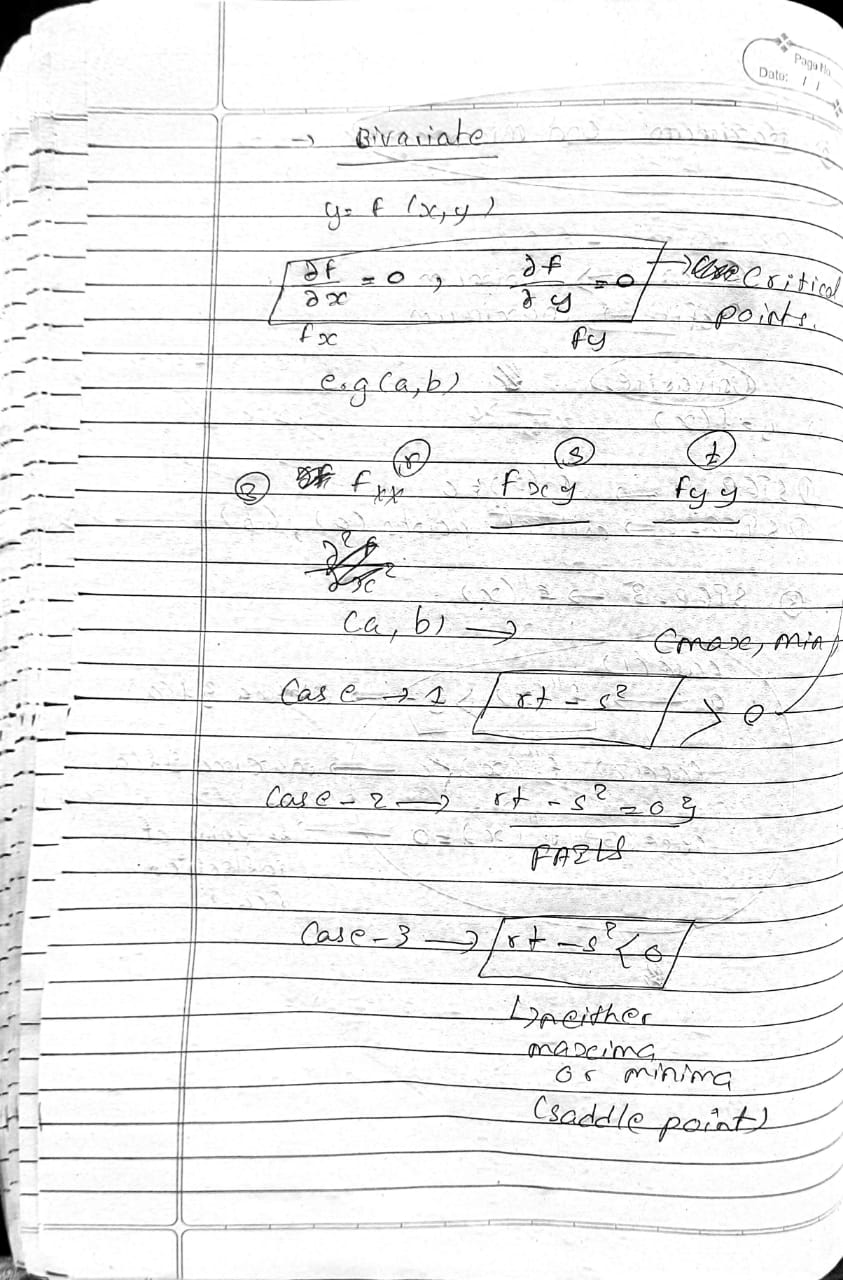 Page No
Date: / /
→ Bivariate
y = f (x, y)
∂f/∂x = 0 , ∂f/∂y = 0 → Critical
points.
fx fy
e.g (a, b)
r s t
② fxx fxy fyy
(a, b) →
(max, min)
Case → 1 rt - s² > 0
Case - 2 → rt - s² = 0
FAILS
Case - 3 → rt - s² < 0
↳ neither
maxima
or minima
(saddle point)